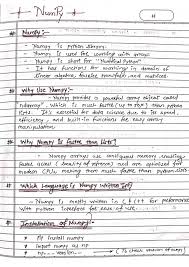 NumPy
# Numpy :-
→ Numpy is python library.
→ Numpy is used for working with arrays.
→ Numpy is short for "Numerical Python".
→ It has functions for working in domain of
linear algebra, fourier transform, and matrices.
# Why Use Numpy :-
→ Numpy provides a powerful array object called
"ndarray", which is much faster (up to 50x) than python
lists. It's essential for data science due to its speed,
efficiency, and built-in functions for easy array
manipulation.
# Why Numpy is faster than lists?
→ Numpy arrays use contiguous memory
and are optimized for
modern CPUs making them much faster than python lists.
# Which Language is Numpy Written In?
→ Numpy is mostly written in C/C++ for performance
with Python interface for ease of use.
# Installation of Numpy :-
→ Pip install numpy
→ import numpy as np
→ np.__version__ (To check version of numpy)